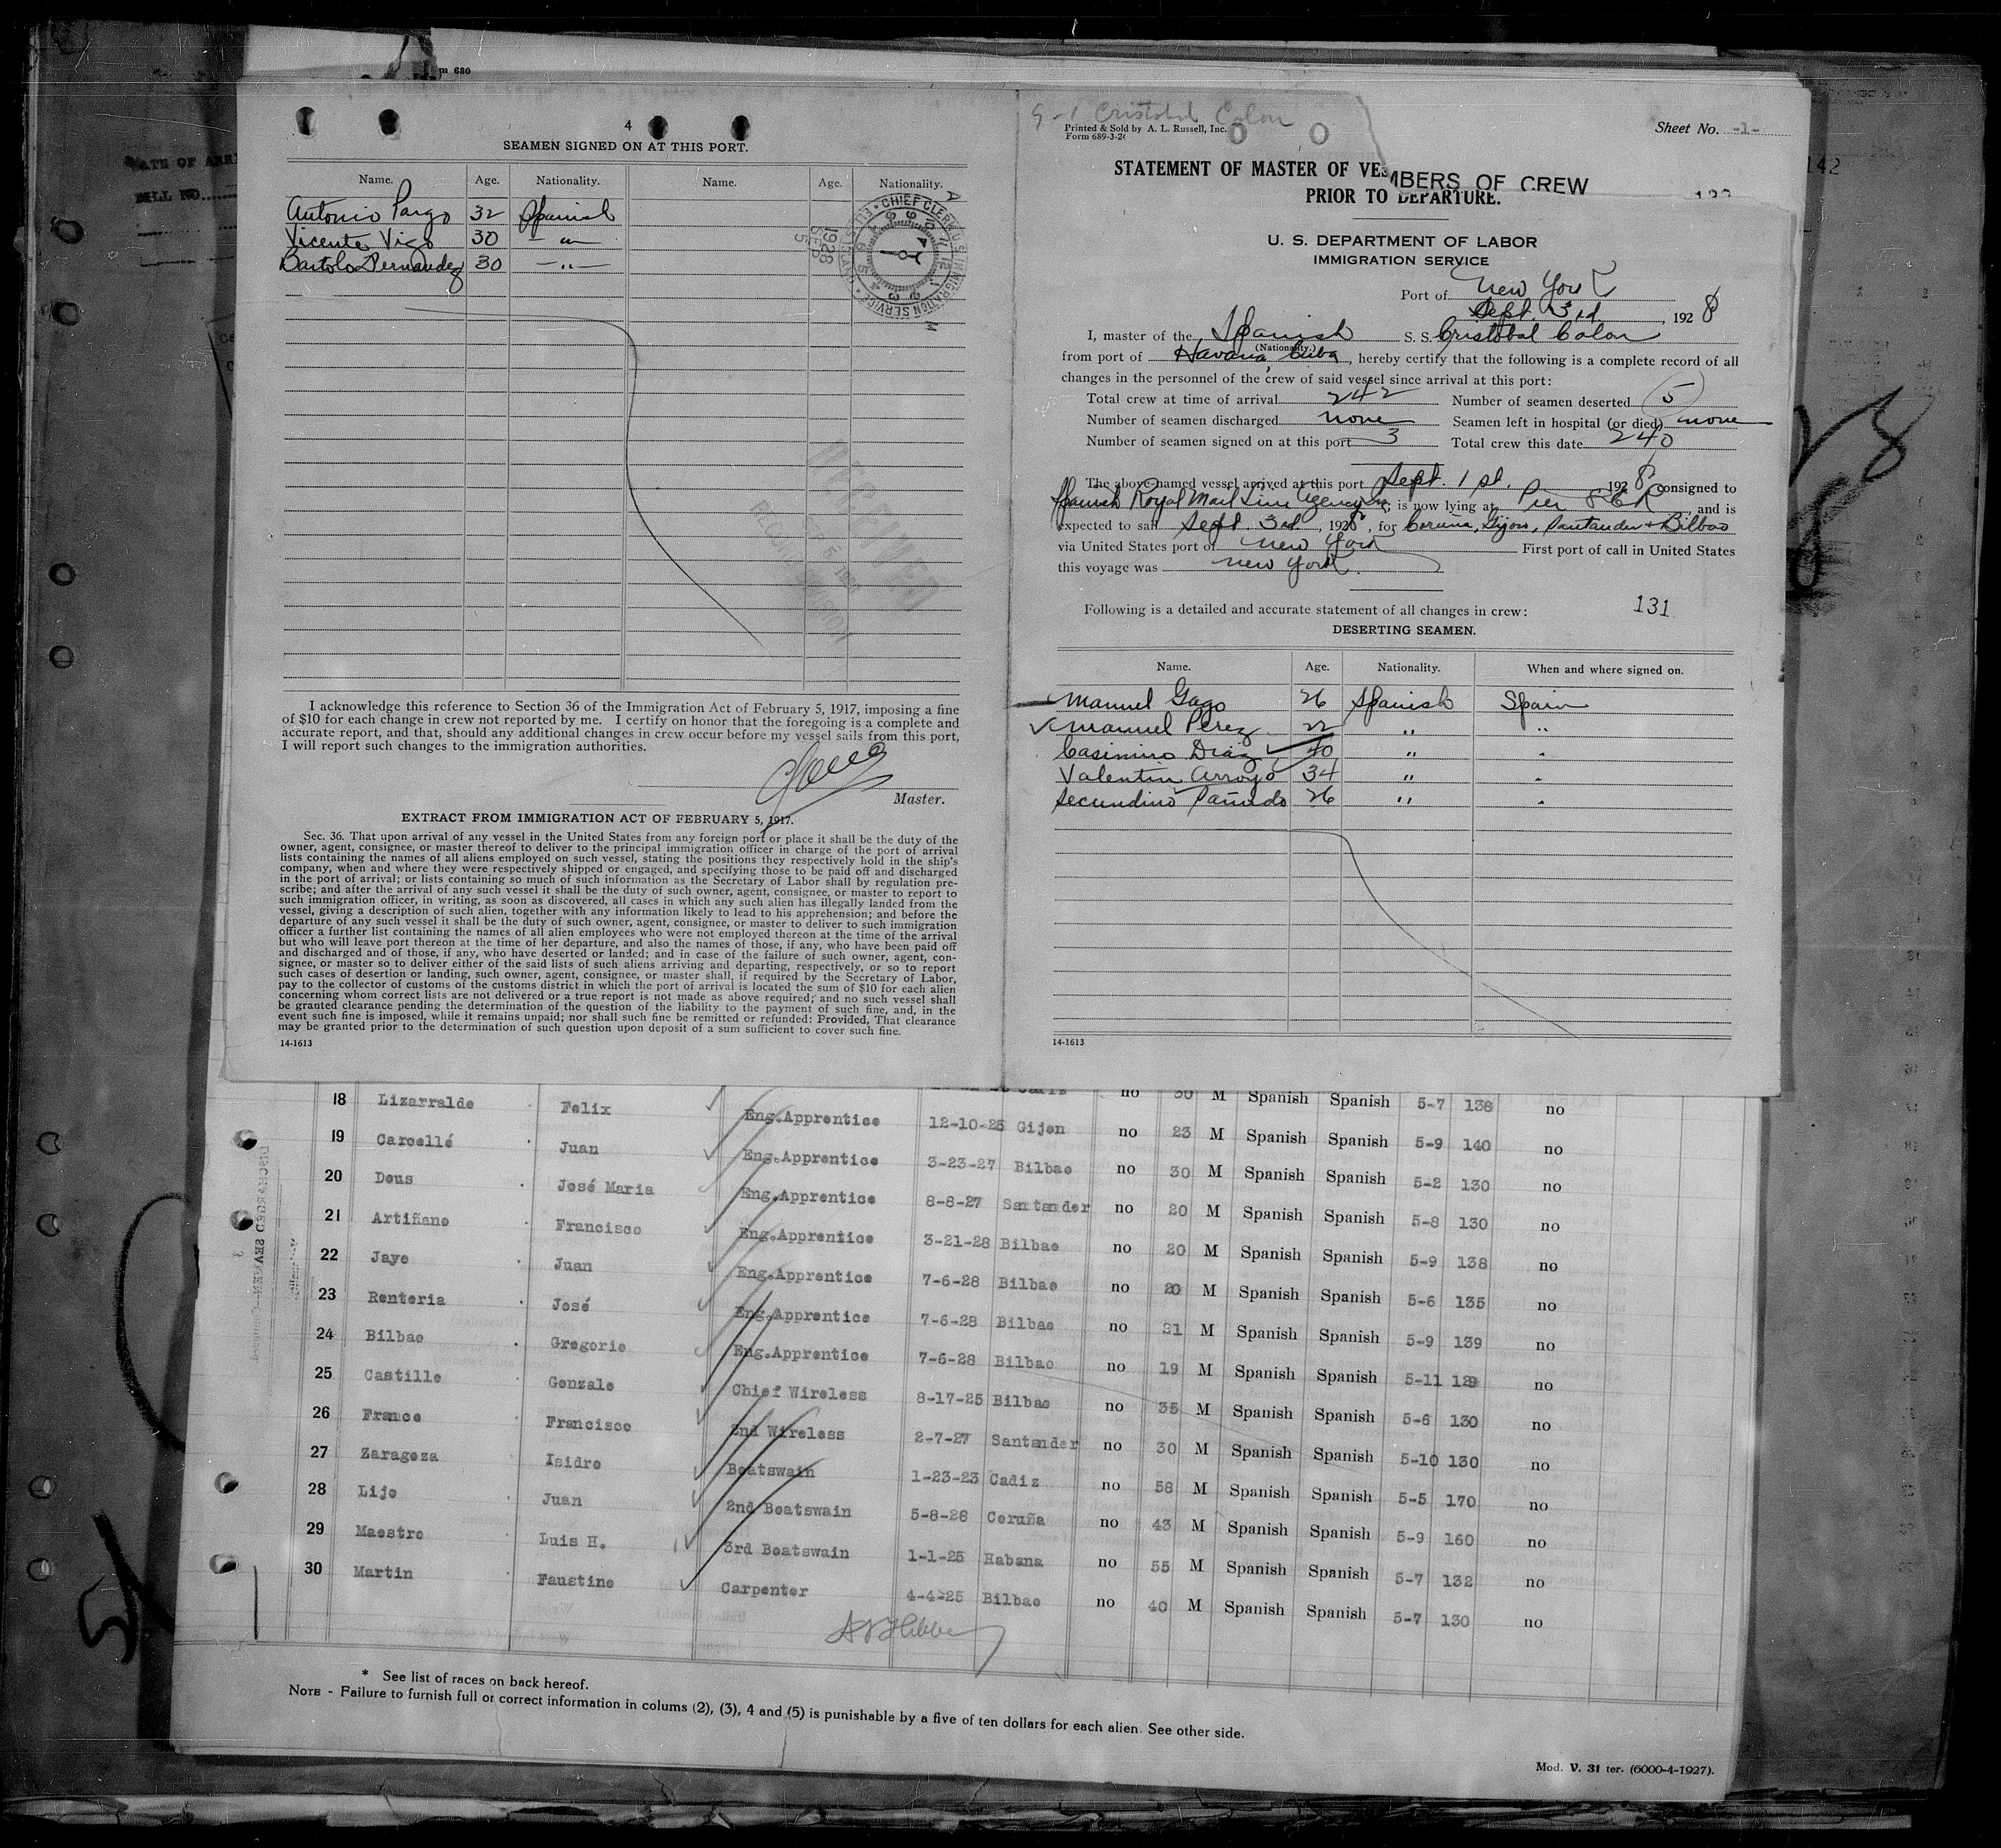 m 680
4
SEAMEN SIGNED ON AT THIS PORT.
Name. Age. Nationality. Name. Age. Nationality.
Antonio Pargo 32 Spanish
Vicente Vigo 30 — " —
Bartolo Fernandez 30 — " —
CHIEF CLERK U.S. IMMIGRATION SERVICE
1928 SEP 5
RECEIVED
I acknowledge this reference to Section 36 of the Immigration Act of February 5, 1917, imposing a fine
of $10 for each change in crew not reported by me. I certify on honor that the foregoing is a complete and
accurate report, and that, should any additional changes in crew occur before my vessel sails from this port,
I will report such changes to the immigration authorities.
Master.
EXTRACT FROM IMMIGRATION ACT OF FEBRUARY 5, 1917.
Sec. 36. That upon arrival of any vessel in the United States from any foreign port or place it shall be the duty of the
owner, agent, consignee, or master thereof to deliver to the principal immigration officer in charge of the port of arrival
lists containing the names of all aliens employed on such vessel, stating the positions they respectively hold in the ship's
company, when and where they were respectively shipped or engaged, and specifying those to be paid off and discharged
in the port of arrival; or lists containing so much of such information as the Secretary of Labor shall by regulation pre-
scribe; and after the arrival of any such vessel it shall be the duty of such owner, agent, consignee, or master to report to
such immigration officer, in writing, as soon as discovered, all cases in which any such alien has illegally landed from the
vessel, giving a description of such alien, together with any information likely to lead to his apprehension; and before the
departure of any such vessel it shall be the duty of such owner, agent, consignee, or master to deliver to such immigration
officer a further list containing the names of all alien employees who were not employed thereon at the time of the arrival
but who will leave port thereon at the time of her departure, and also the names of those, if any, who have been paid off
and discharged and of those, if any, who have deserted or landed; and in case of the failure of such owner, agent, con-
signee, or master so to deliver either of the said lists of such aliens arriving and departing, respectively, or so to report
such cases of desertion or landing, such owner, agent, consignee, or master shall, if required by the Secretary of Labor,
pay to the collector of customs of the customs district in which the port of arrival is located the sum of $10 for each alien
concerning whom correct lists are not delivered or a true report is not made as above required; and no such vessel shall
be granted clearance pending the determination of the question of the liability to the payment of such fine, and, in the
event such fine is imposed, while it remains unpaid; nor shall such fine be remitted or refunded: Provided, That clearance
may be granted prior to the determination of such question upon deposit of a sum sufficient to cover such fine.
14-1613
Cristobal Colon
Printed & Sold by A. L. Russell, Inc.
Form 689-3-26
Sheet No. -1-
142
STATEMENT OF MASTER OF VES
MBERS OF CREW
PRIOR TO DEPARTURE.
U. S. DEPARTMENT OF LABOR
IMMIGRATION SERVICE
Port of New York
Sept. 3rd, 1928
I, master of the Spanish S. S. Cristobal Colon
(Nationality.)
from port of Havana, Cuba, hereby certify that the following is a complete record of all
changes in the personnel of the crew of said vessel since arrival at this port:
Total crew at time of arrival 242 Number of seamen deserted 5
Number of seamen discharged none Seamen left in hospital (or died) none
Number of seamen signed on at this port 3 Total crew this date 240
The above named vessel arrived at this port Sept. 1st. 1928, consigned to
Spanish Royal Mail Line Agency Inc, is now lying at Pier 8 E R, and is
expected to sail Sept. 3rd, 1928, for Coruña, Gijon, Santander & Bilbao
via United States port of New York First port of call in United States
this voyage was New York.
Following is a detailed and accurate statement of all changes in crew: 131
DESERTING SEAMEN.
Name. Age. Nationality. When and where signed on.
Manuel Gago 26 Spanish Spain
Manuel Perez 22 " "
Casimiro Diaz 40 " "
Valentin Arroyo 34 " "
Secundino Pañedo 26 " "
14-1613
18 Lizarralde Felix Eng.Apprentice 12-10-25 Gijon no 30 M Spanish Spanish 5-7 138 no
19 Carcellé Juan Eng.Apprentice 3-23-27 Bilbao no 23 M Spanish Spanish 5-9 140 no
20 Deus José Maria Eng.Apprentice 8-8-27 Santander no 30 M Spanish Spanish 5-2 130 no
21 Artiñano Francisco Eng.Apprentice 3-21-28 Bilbao no 20 M Spanish Spanish 5-8 130 no
22 Jayo Juan Eng.Apprentice 7-6-28 Bilbao no 20 M Spanish Spanish 5-9 138 no
23 Renteria José Eng.Apprentice 7-6-28 Bilbao no 20 M Spanish Spanish 5-6 135 no
24 Bilbao Gregorio Eng.Apprentice 7-6-28 Bilbao no 21 M Spanish Spanish 5-9 139 no
25 Castillo Gonzalo Chief Wireless 8-17-25 Bilbao no 19 M Spanish Spanish 5-11 129 no
26 Franco Francisco 2nd Wireless 2-7-27 Santander no 35 M Spanish Spanish 5-6 130 no
27 Zaragoza Isidro Boatswain 1-23-23 Cadiz no 30 M Spanish Spanish 5-10 130 no
28 Lijo Juan 2nd Boatswain 5-8-26 Coruña no 58 M Spanish Spanish 5-5 170 no
29 Maestro Luis H. 3rd Boatswain 1-1-25 Habana no 43 M Spanish Spanish 5-9 160 no
30 Martin Faustino Carpenter 4-4-25 Bilbao no 55 M Spanish Spanish 5-7 132 no
40 M Spanish Spanish 5-7 130 no
* See list of races on back hereof.
NOTE - Failure to furnish full or correct information in colums (2), (3), 4 and (5) is punishable by a five of ten dollars for each alien. See other side.
Mod. V. 31 ter. (6000-4-1927).